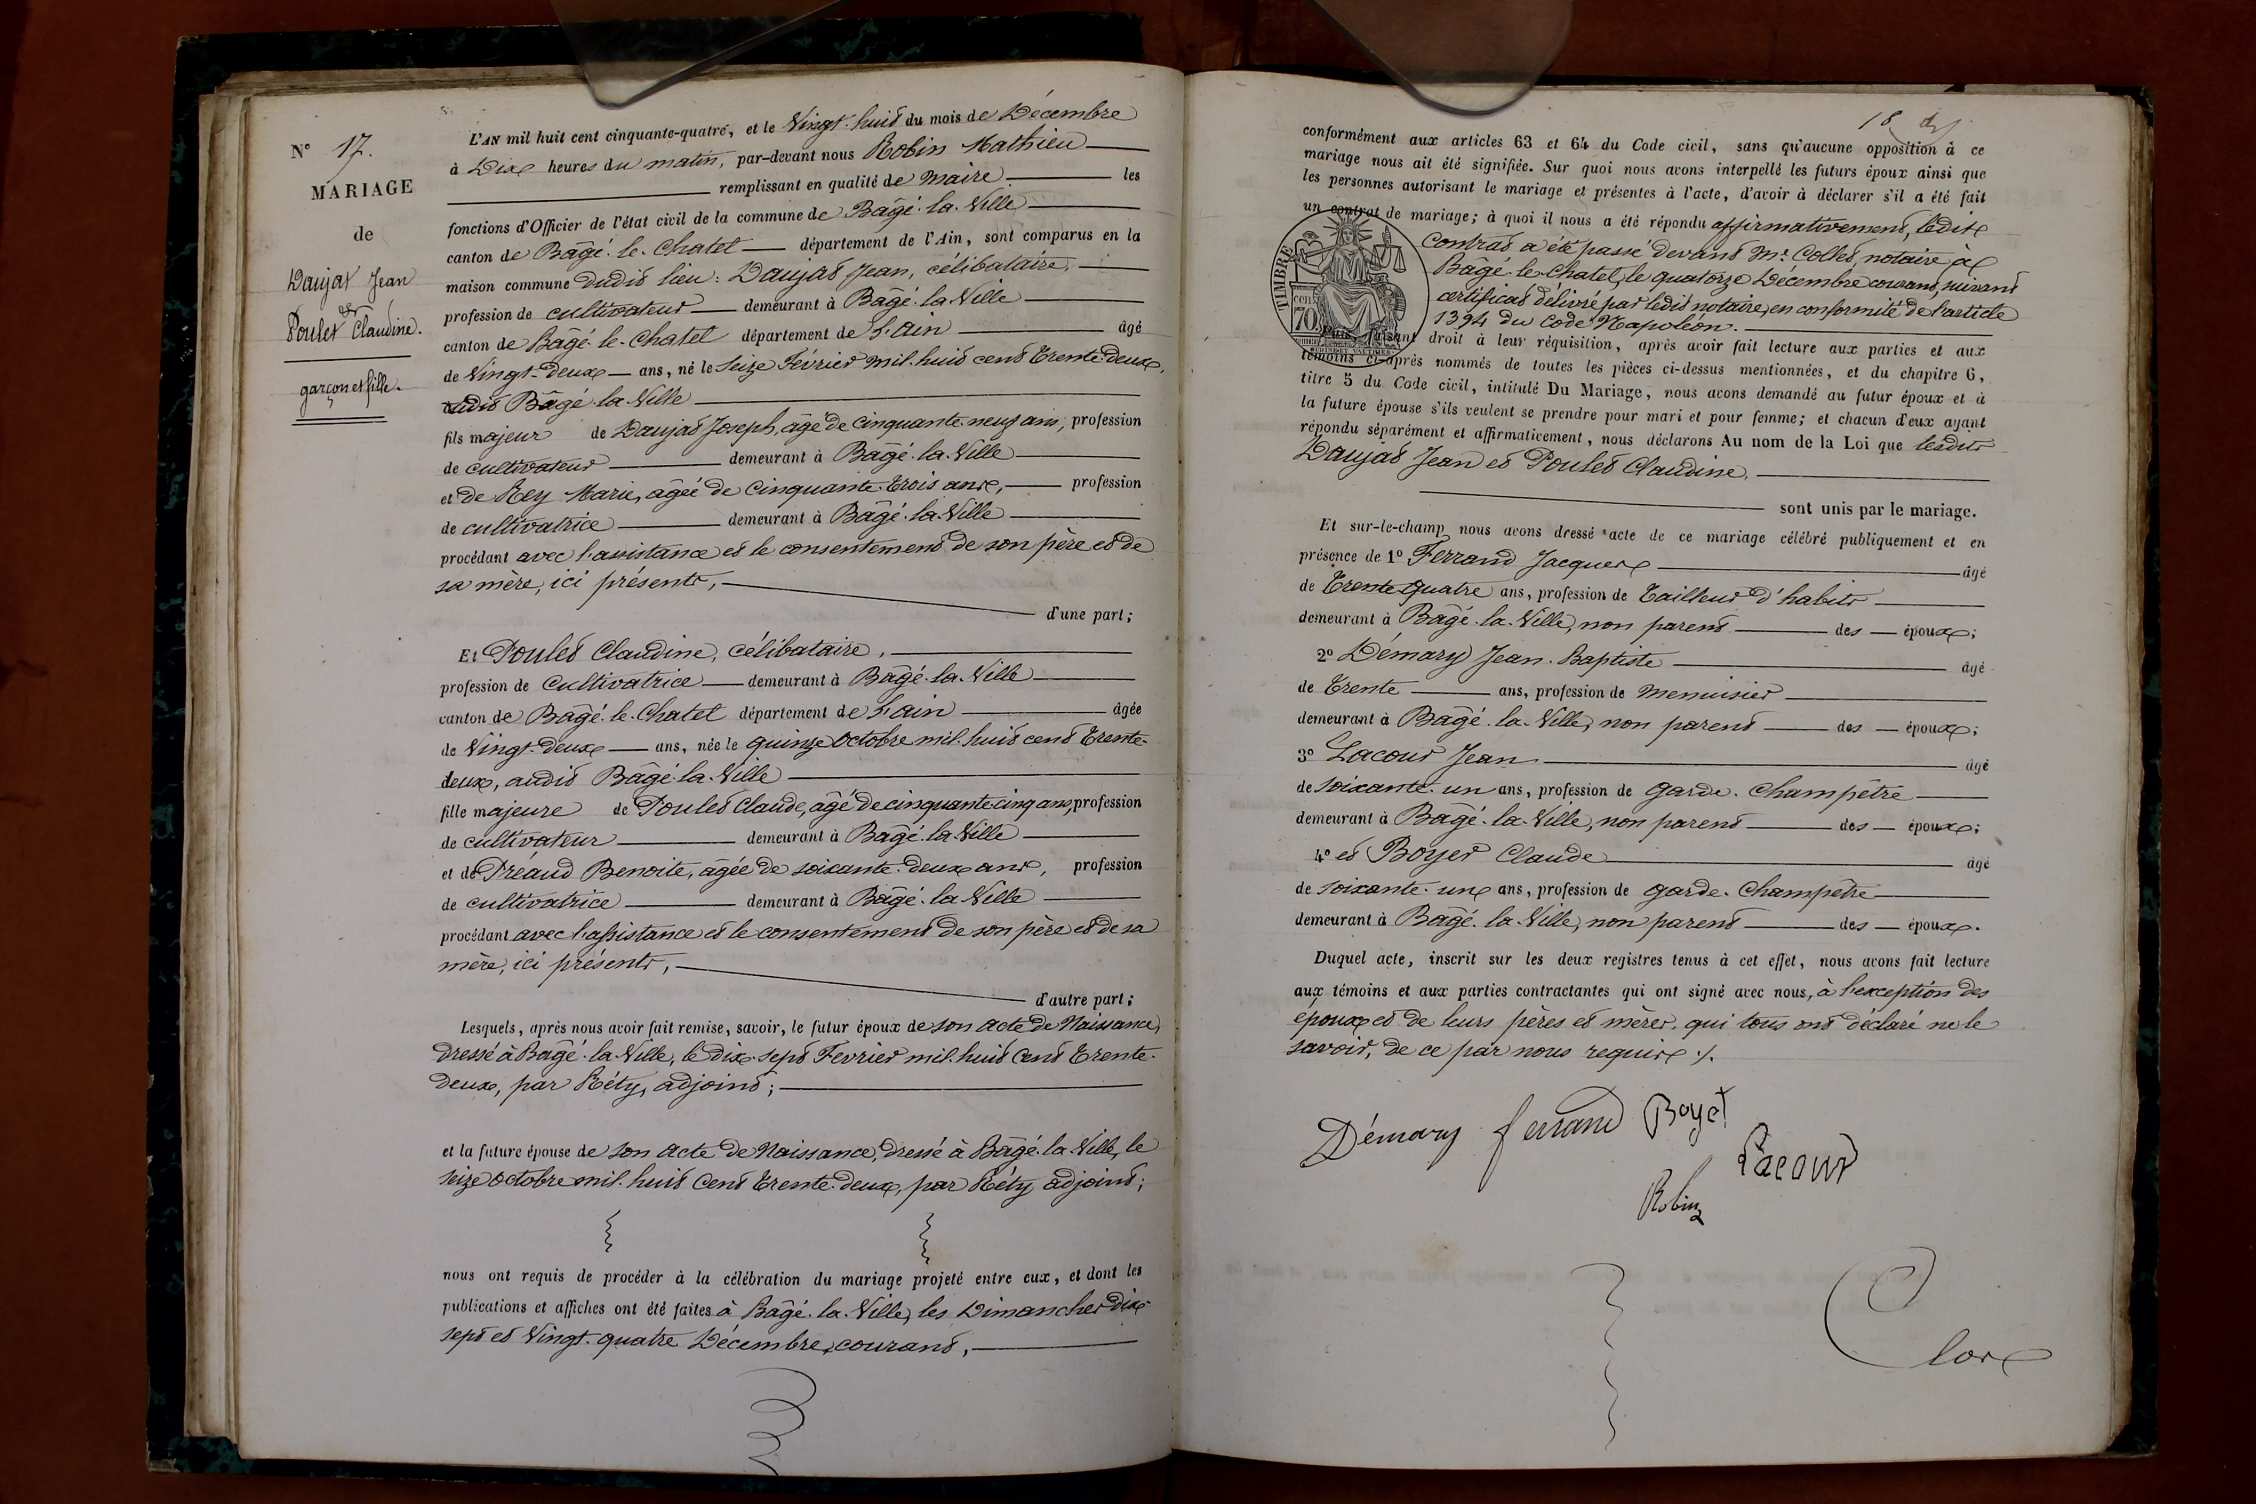 N° 17.
MARIAGE
de
Daujat Jean
et
Poulet Claudine.
garçon et fille.
L'AN mil huit cent cinquante-quatre, et le Vingt-huit du mois de Décembre
à Dix heures du matin, par-devant nous Robin Mathieu
remplissant en qualité de maire les
fonctions d'Officier de l'état civil de la commune de Bâgé-la-Ville
canton de Bâgé-le-Chatel département de l'Ain, sont comparus en la
maison commune dudit lieu : Daujat Jean, célibataire,
profession de cultivateur demeurant à Bâgé-la-Ville
canton de Bâgé-le-Chatel département de l'ain âgé
de Vingt-deux ans, né le Seize Février mil-huit cent Trente-deux,
audit Bâgé-la-Ville
fils majeur de Daujat Joseph, âgé de Cinquante-neuf ans, profession
de cultivateur demeurant à Bâgé-la-Ville
et de Rey Marie, âgée de Cinquante-Trois ans, profession
de cultivatrice demeurant à Bâgé-la-Ville
procédant avec l'assistance et le consentement de son père et de
sa mère, ici présents,
d'une part;
Et Poulet Claudine, célibataire,
profession de Cultivatrice demeurant à Bâgé-la-Ville
canton de Bâgé-le-Chatel département de l'ain âgée
de Vingt-deux ans, née le quinze Octobre mil-huit cent Trente-
deux, audit Bâgé-la-Ville
fille majeure de Poulet Claude, âgé de cinquante cinq ans, profession
de cultivateur demeurant à Bâgé-la-Ville
et de Préaud Benoite, âgée de soixante-deux ans, profession
de cultivatrice demeurant à Bâgé-la-Ville
procédant avec l'assistance et le consentement de son père et de sa
mère, ici présents,
d'autre part;
Lesquels, après nous avoir fait remise, savoir, le futur époux de son Acte de Naissance,
dressé à Bâgé-la-Ville, le dix-sept Fevrier mil-huit Cent Trente-
deux, par Réty, adjoint;
et la future épouse de son Acte de Naissance, dressé à Bâgé-la-Ville, le
seize Octobre mil-huit Cent Trente-deux, par Réty adjoint;
nous ont requis de procéder à la célébration du mariage projeté entre eux, et dont les
publications et affiches ont été faites à Bâgé-la-Ville, les Dimanches dix-
sept et Vingt-quatre Décembre, courant,
18
conformément aux articles 63 et 64 du Code civil, sans qu'aucune opposition à ce
mariage nous ait été signifiée. Sur quoi nous avons interpellé les futurs époux ainsi que
les personnes autorisant le mariage et présentes à l'acte, d'avoir à déclarer s'il a été fait
un contrat de mariage; à quoi il nous a été répondu affirmativement, ledit
Contrat a été passé devant Mr. Collet, notaire à
Bâgé-le-Chatel, le quatorze Décembre courant, suivant
certificat délivré par ledit notaire, en conformité de l'article
1394 du Code Napoléon.
TIMBRE
cen
70
Puis, faisant droit à leur réquisition, après avoir fait lecture aux parties et aux
témoins ci-après nommés de toutes les pièces ci-dessus mentionnées, et du chapitre 6,
titre 5 du Code civil, intitulé Du Mariage, nous avons demandé au futur époux et à
la future épouse s'ils veulent se prendre pour mari et pour femme; et chacun d'eux ayant
répondu séparément et affirmativement, nous déclarons Au nom de la Loi que lesdits
Daujat Jean et Poulet Claudine,
sont unis par le mariage.
Et sur-le-champ nous avons dressé acte de ce mariage célébré publiquement et en
présence de 1° Ferrand Jacques âgé
de Trente-quatre ans, profession de Tailleur d'habits
demeurant à Bâgé-la-Ville, non parent des époux;
2° Démary Jean-Baptiste âgé
de Trente ans, profession de menuisier
demeurant à Bâgé-la-Ville, non parent des époux;
3° Lacour Jean âgé
de soixante-un ans, profession de garde-Champêtre
demeurant à Bâgé-la-Ville, non parent des époux;
4° et Boyer Claude âgé
de soixante-un ans, profession de garde-Champêtre
demeurant à Bâgé-la-Ville, non parent des époux.
Duquel acte, inscrit sur les deux registres tenus à cet effet, nous avons fait lecture
aux témoins et aux parties contractantes qui ont signé avec nous, à l'exception des
époux et de leurs pères et mères, qui tous ont déclaré ne le
savoir, de ce par nous requis ./.
Démary ferrand Boyet
Lacour
Robin
Clos